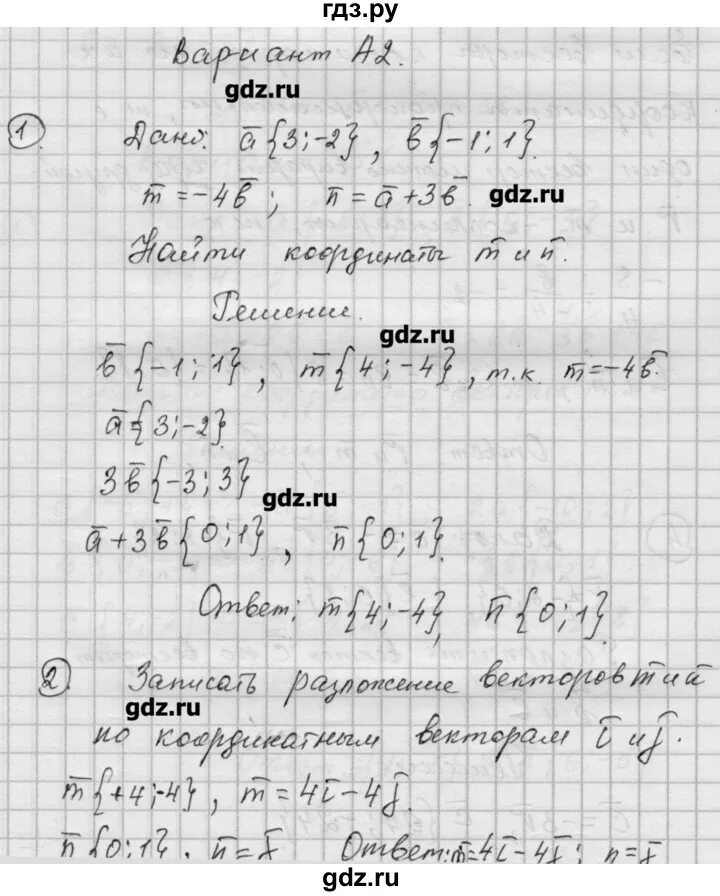 Вариант А2.
гдз.ру
① Дано: a̅{3;-2}, b̅{-1;1}.
m̅=-4b̅; n̅=a̅+3b̅. gdz.ru
Найти координаты m̅ и n̅.
Решение.
gdz.ru
b̅{-1;1}, m̅{4;-4}, т.к. m̅=-4b̅.
a̅={3;-2}
3b̅{-3;3}
gdz.ru
a̅+3b̅{0;1}, n̅{0;1}.
Ответ: m̅{4;-4}, n̅{0;1}.
② Записать разложение векторов m̅ и n̅
gdz.ru
по координатным векторам i̅ и j̅.
m̅{+4;-4}, m̅=4i̅-4j̅.
n̅{0;1}. n̅=j̅ Ответ: m̅=4i̅-4j̅; n=j̅